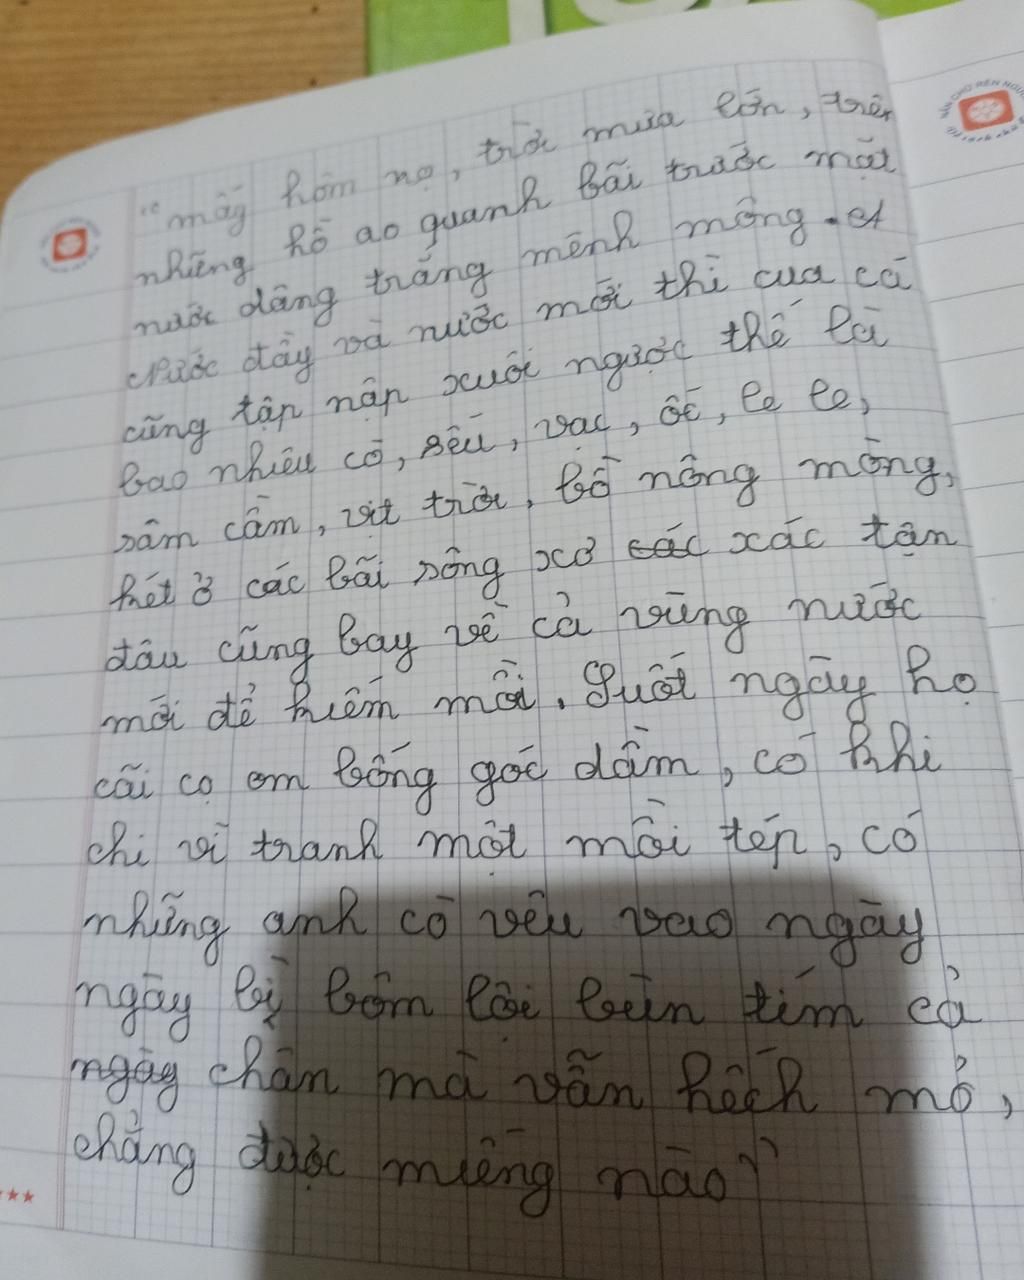 "mấy hôm nọ, trời mưa lớn, trên
những hồ ao quanh bãi trước mặt
nước dâng trắng mênh mông. et
nước đầy và nước mới thì cua cá
cũng tập nập xuôi ngược thế là
bao nhiêu cò, sếu, vạc, ốc, le le,
sâm cầm, vịt trời, bồ nông mòng,
hét ở các bãi sông xơ xác tận
đâu cũng bay về cả vùng nước
mới để kiếm mồi. Suốt ngày họ
cãi cọ om bống góc đầm, có khi
chỉ vì tranh một mồi tép, có
những anh cò vêu vao ngày
ngày bì bõm lội bùn tím cả
ngày chân mà vẫn hếch mỏ,
chẳng được miếng nào"